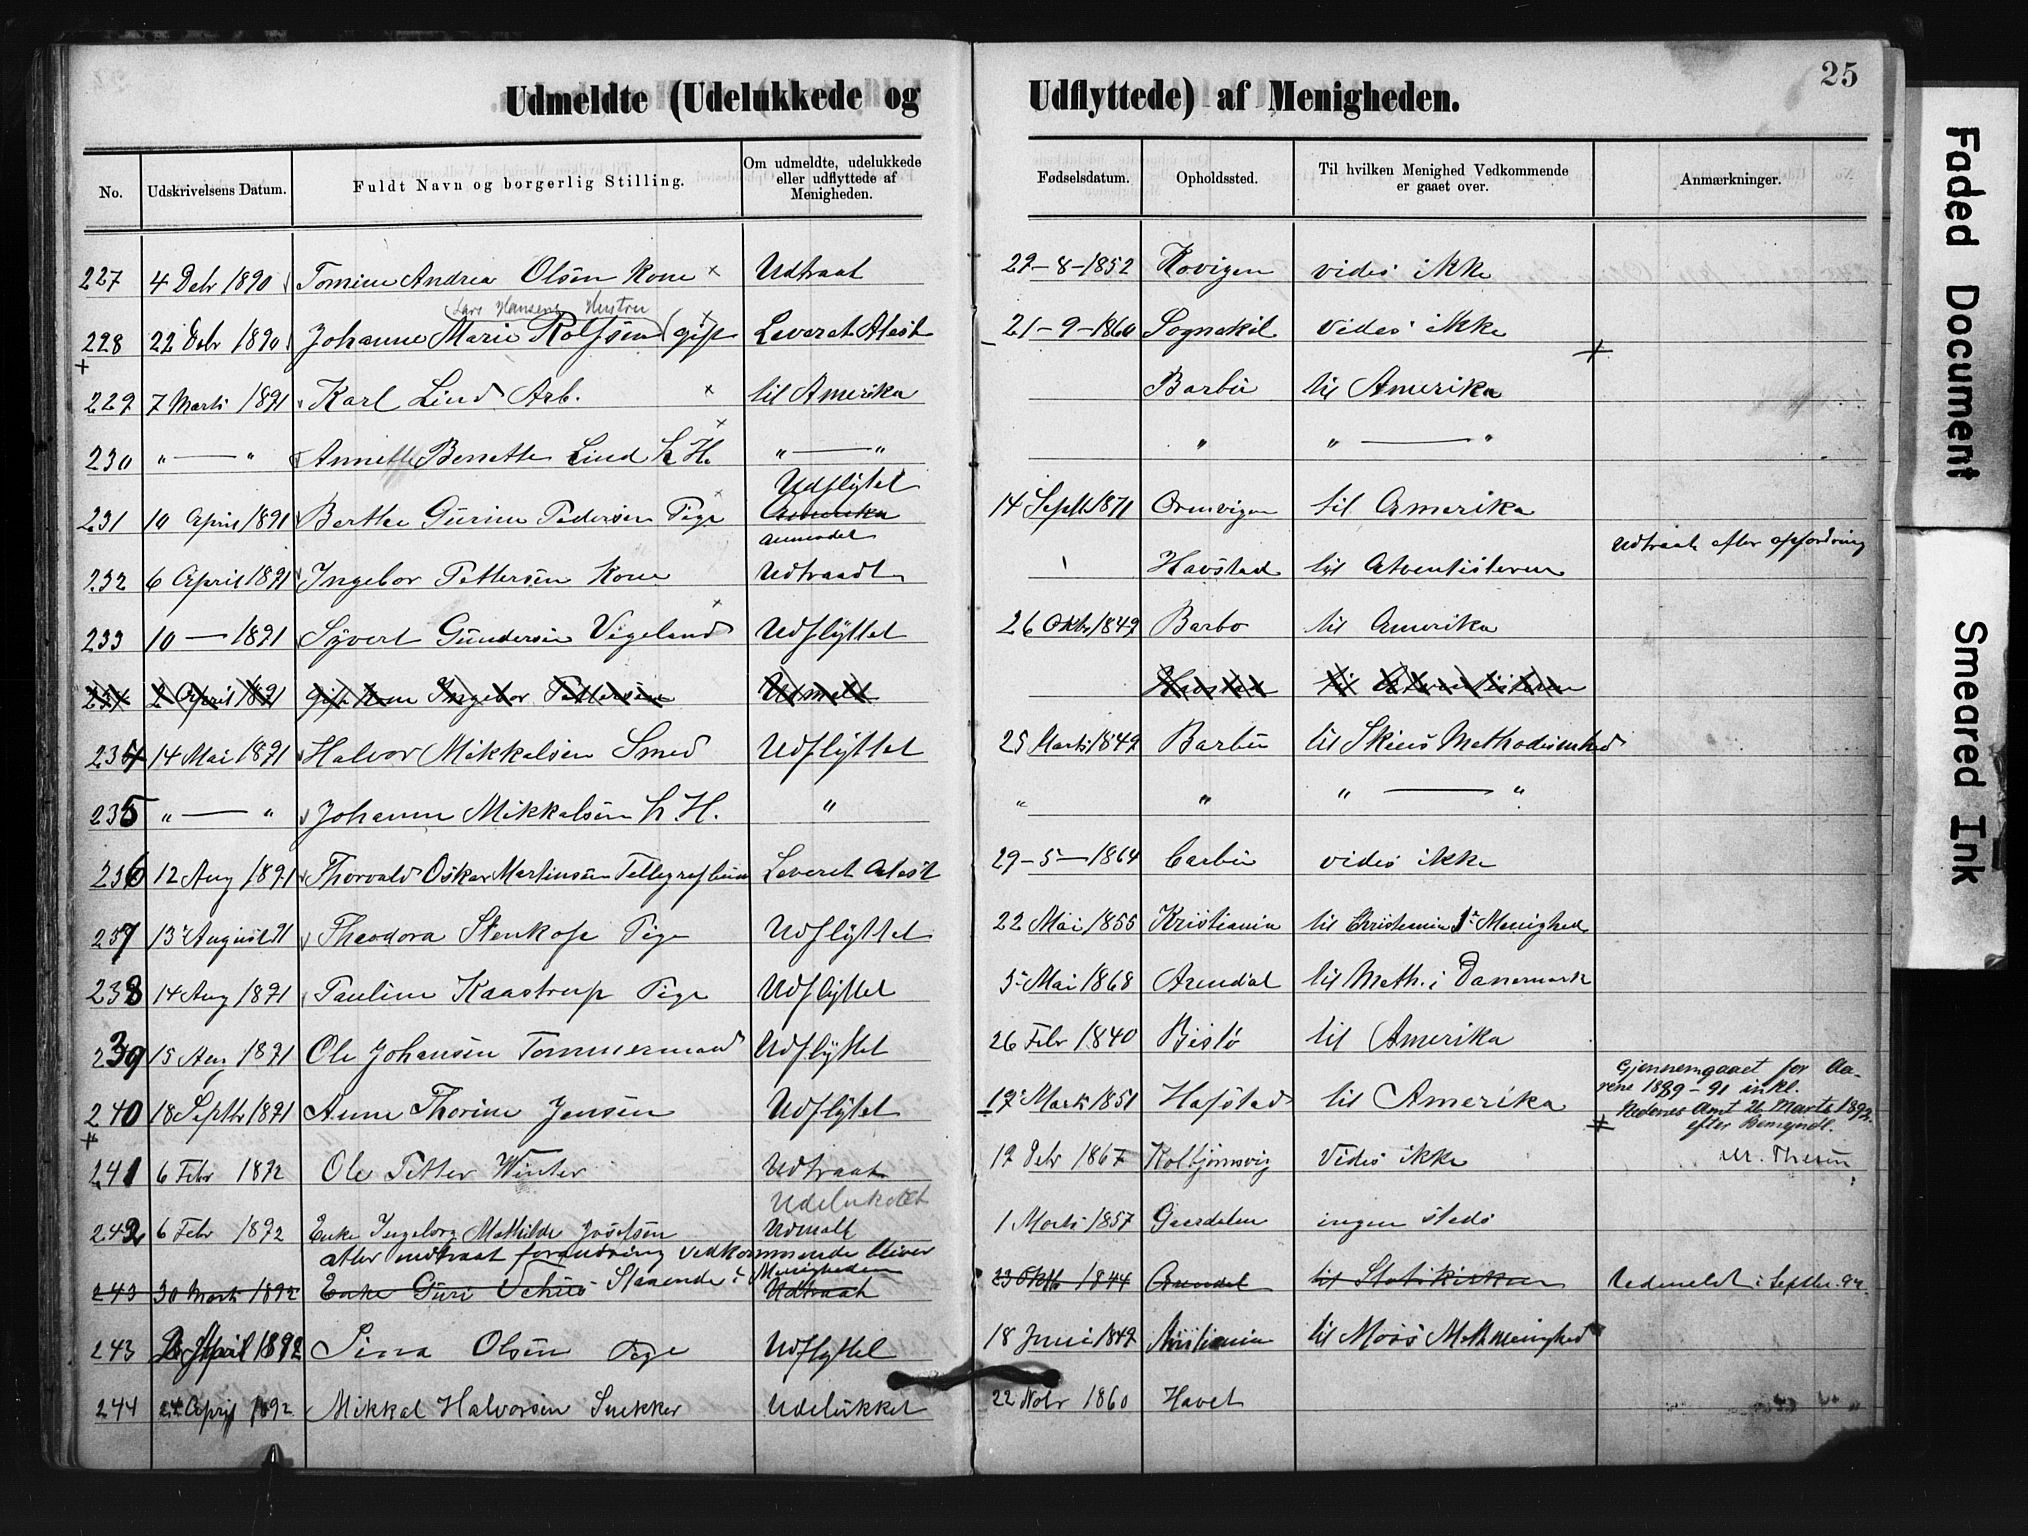 25
Udmeldte (Udelukkede og Udflyttede) af Menigheden.
No. Udskrivelsens Datum. Fuldt Navn og borgerlig Stilling. Om udmeldte, udelukkede eller udflyttede af Menigheden. Fødselsdatum. Opholdssted. Til hvilken Menighed Vedkommende er gaaet over. Anmærkninger.
227 4 Debr 1890 Tomine Andrea Olsen Kone x Udtraat 29-8-1852 Kovigen vides ikke
Lars Hansens Hustru
228 22 Debr 1890 Johanne Marie Rolfsen (gift x Leveret Atest 21-9-1860 Sognekil vides ikke
229 7 Marts 1891 Karl Lind Arb. x til Amerika Barbu til Amerika
230 " — " Annette Benette Lind h. H. x " — " " " — "
Udflytet
231 10 April 1891 Berthe Gurine Pedersen Pige x Amerika 14 Septb 1871 Ormvigen til Amerika
anmodet Udtraat efter opfordring
232 6 April 1891 Ingebor Pettersen Kone Udtraadt Havstad til Atventisterne
233 10 — 1891 Syvert Gundersen Vigeland x Udflyttet 26 Oktb 1849 Barbo til Amerika
234 2 April 1891 Gift Kone Ingebor Pettersen Udmelt Havstad til Atventisterne
234 14 Mai 1891 Halvor Mikkalsen Smed Udflyttet 25 Marts 1849 Barbu til Skiens Methodismhed
235 " — " Johanne Mikkalsen h. H. " " " " — "
236 12 Aug 1891 Thorvald Oskar Martinsen Leveret Atest 29-5-1864 Barbu vides ikke
237 13 August 91 Theodora Stenkop Pige Udflyttet 22 Mai 1855 Kristiania til Christiania 1ste Menighed
238 14 Aug 1891 Pauline Kaastrup Pige Udflyttet 5 Mai 1868 Arendal til Meth. i Danemark
239 15 Aug 1891 Ole Johansen Tommermand Udflyttet 26 Febr 1840 Bislo til Amerika
Gjennemgaaet for Aa-
rene 1889-91 inkl.
240 18 Septbr 1891 Anne Thorine Jensen Udflytet 19 Marts 1851 Hafstad til Amerika Nedenes Amt 26 Marts 1892.
efter Bemyndl.
241 6 Febr 1892 Ole Petter Winter Udtraat 19 Debr 1867 Kolbjørnsvig Vides ikke M. Thesen
Udelukket
242 6 Febr 1892 Enke Ingeborg Mathilde Josefsen Udmelt 1 Marts 1857 Gaardalen ingen steds
atter indtraat forandring vedkommende bliver
243 30 Marts 1892 Enke Guri Staaende i Menigheden Udtraat 23 Oktb 1844 Arendal til Statskirken Uedmeldt i Septbr. 92.
243 April 1892 Sina Olsen Pige Udflyttet 18 Juni 1849 Kristiania til Moss Meth menighed
244 24 April 1892 Mikkal Halvorsen Snekker Udelukket 22 Nobr 1860 Havet
Faded Document
Smeared Ink